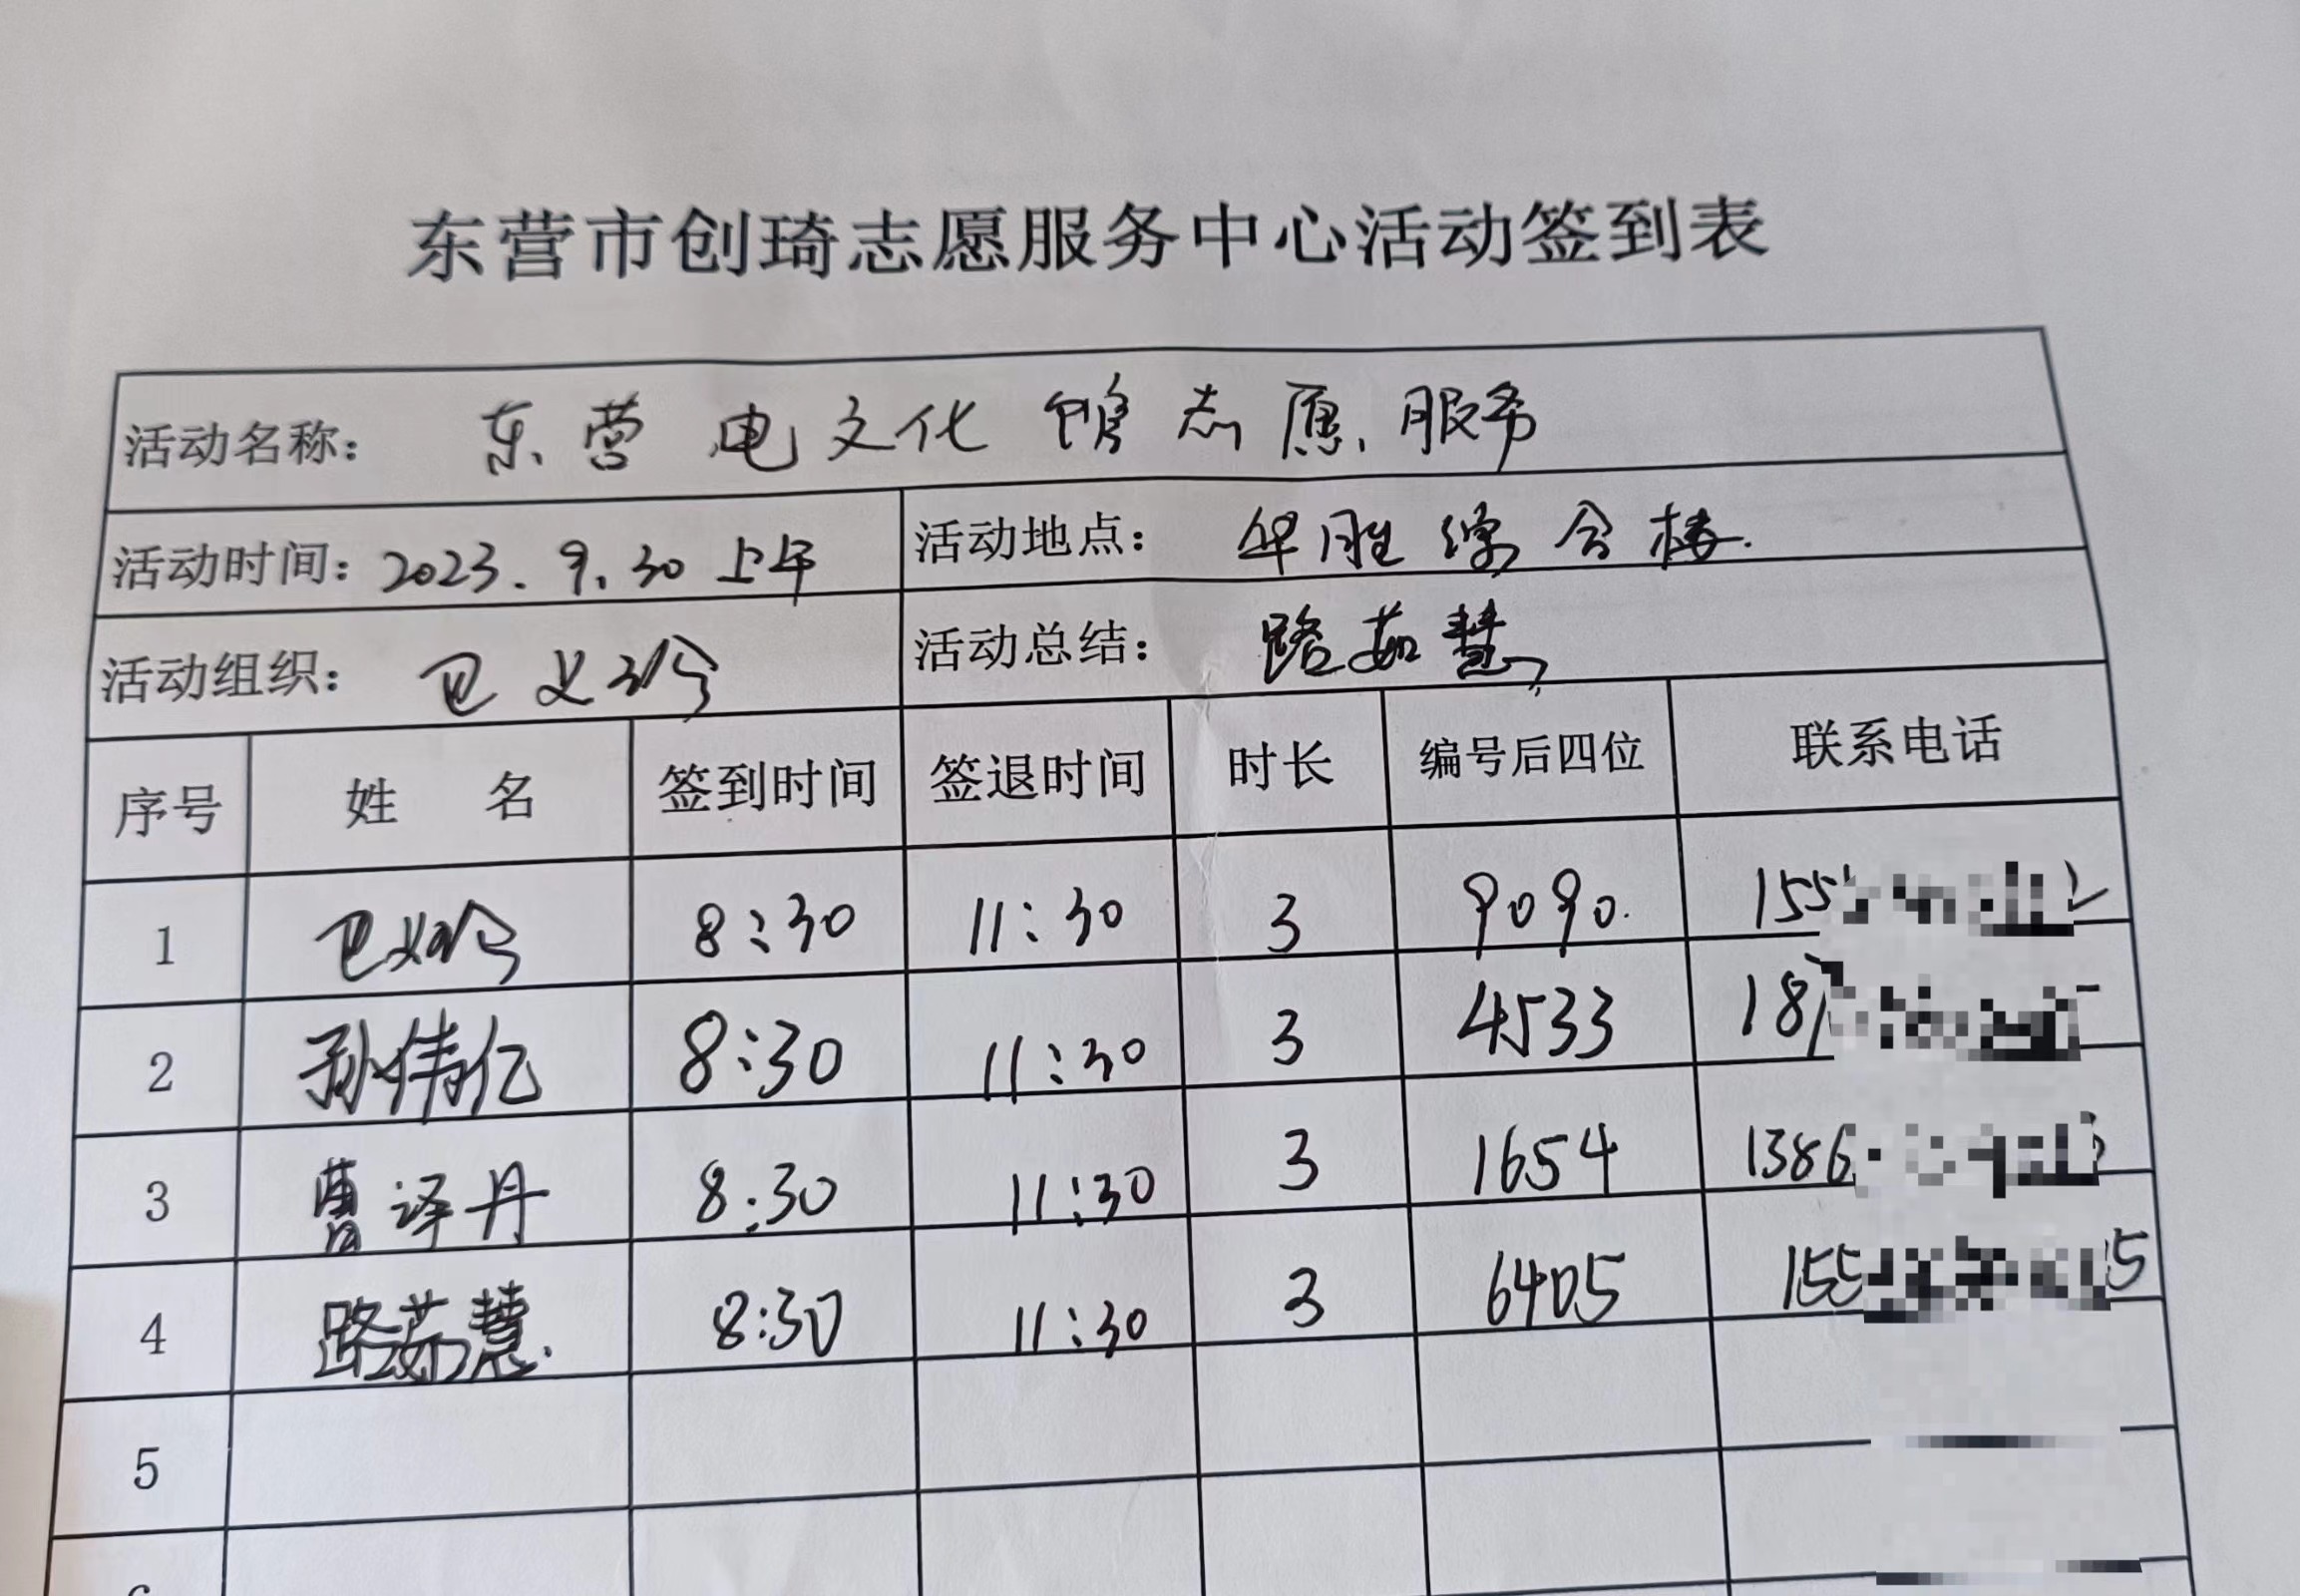 东营市创琦志愿服务中心活动签到表
活动名称： 东营电文化馆志愿服务
活动时间：2023.9.30上午 活动地点： 华胜综合楼.
活动组织： 卫义珍 活动总结： 路茹慧
序号 姓 名 签到时间 签退时间 时长 编号后四位 联系电话
1 卫义珍 8:30 11:30 3 9090. 155
2 孙伟亿 8:30 11:30 3 4533 18
3 曹译丹 8:30 11:30 3 1654 1386
4 路茹慧. 8:30 11:30 3 6405 155 5
5